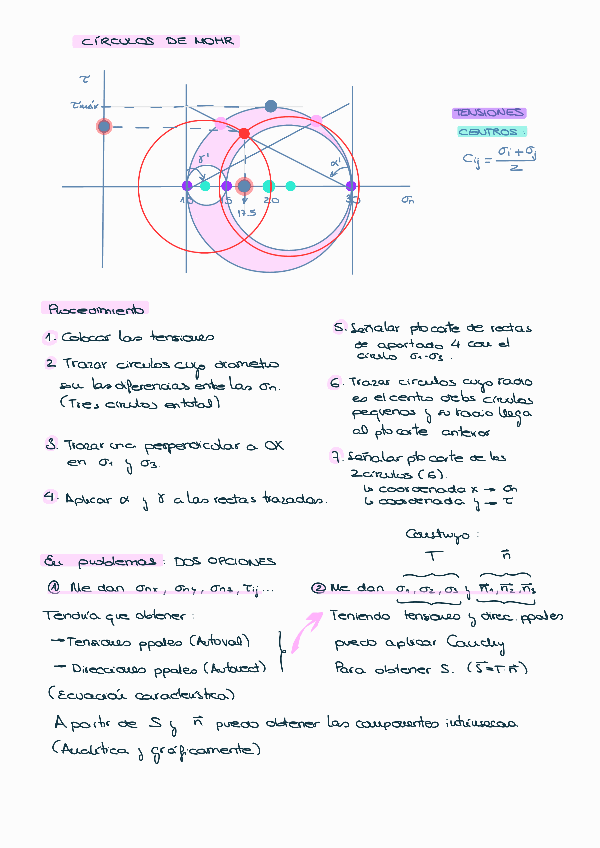 CÍRCULOS DE MOHR
τ
τmáx
TENSIONES
CENTROS:
Cij = σi + σj / 2
γ'
α'
10
15
17.5
20
30
σn
Procedimiento
1. Colocar las tensiones
2. Trazar círculos cuyo diámetro
son las diferencias entre las σn.
(Tres círculos en total)
3. Trazar una perpendicular a OX
en σ1 y σ3.
4. Aplicar α y γ a las rectas trazadas.
5. Señalar pto corte de rectas
de apartado 4 con el
círculo σ1-σ3.
6. Trazar círculos cuyo radio
es el centro de los círculos
pequeños y su radio llega
al pto corte anterior
7. Señalar pto corte de los
2 círculos (6).
↳ coordenada x → σn
↳ coordenada y → τ
En problemas: DOS OPCIONES
① Me dan σnx, σny, σnz, τij...
Tendría que obtener:
→ Tensiones ppales (Autoval)
→ Direcciones ppales (Autovect)
(Ecuación característica)
Construyo:
T n⃗
② Me dan σ1, σ2, σ3 y n⃗1, n⃗2, n⃗3
Teniendo tensiones y direc. ppales
puedo aplicar Cauchy
Para obtener S. (S⃗=T n⃗)
A partir de S y n⃗ puedo obtener las componentes intrínsecas
(Analítica y gráficamente)